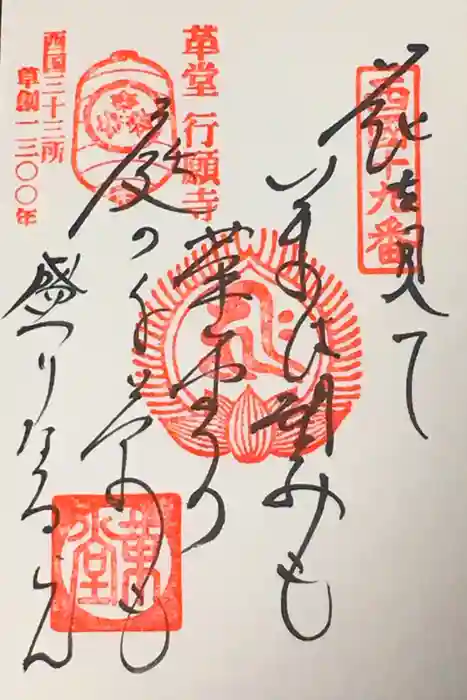 西国十九番
花を見て
いまは望みも
革堂の
庭の千草も
盛りなるらん
革堂 行願寺
西国三十三所
草創一三〇〇年
革堂